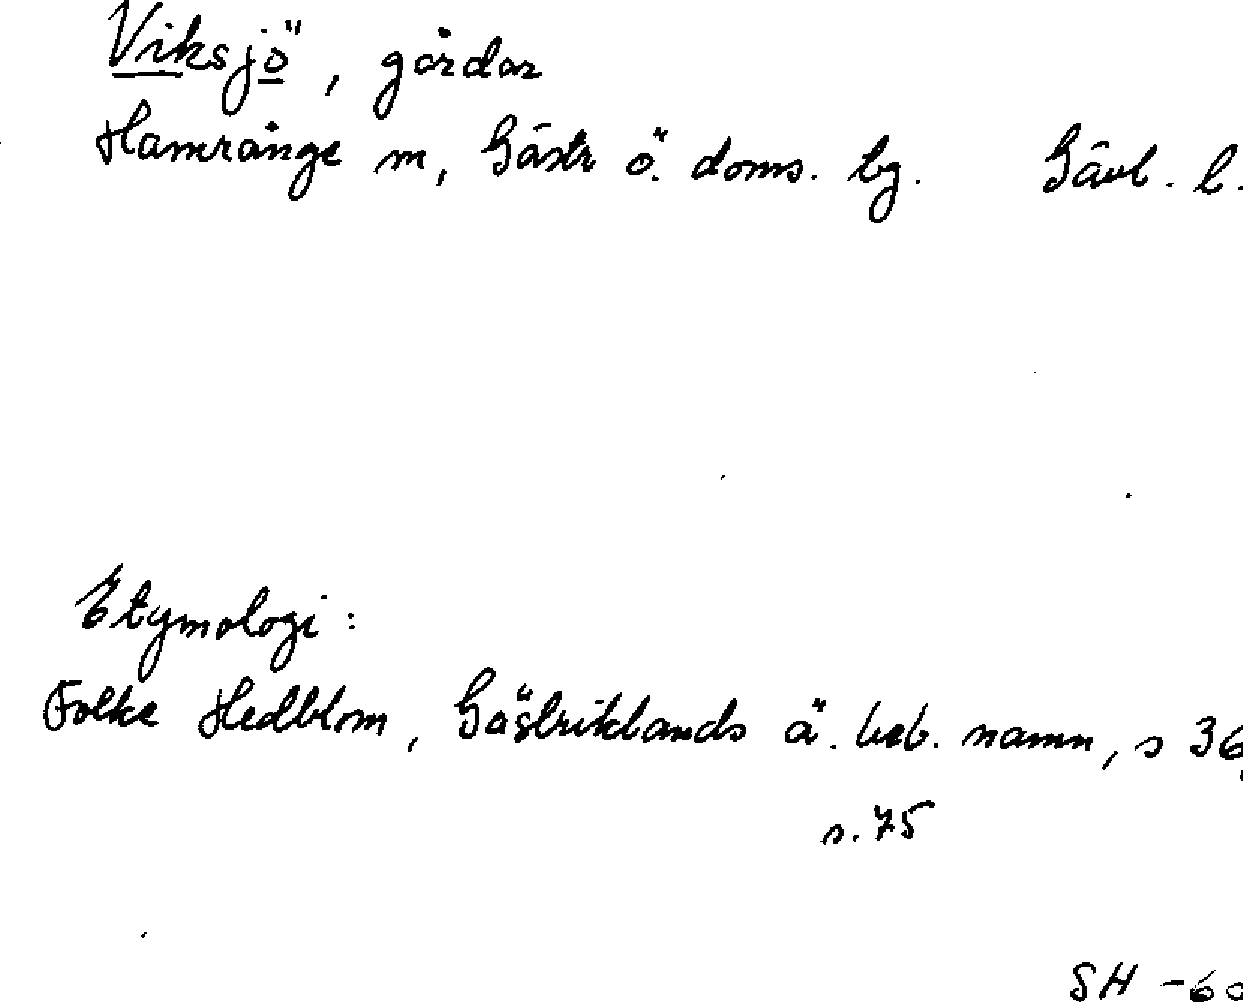 Viksjö, gårdar
Hamrånge m, Gästr ö. doms. tg. Gävl. l.
Etymologi:
Folke Hedblom, Gästriklands ä. beb. namn, s 36,
s. 75
SH -60